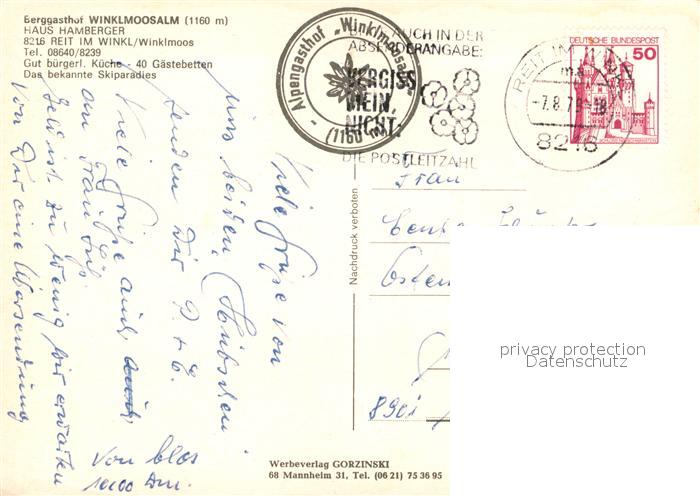 Berggasthof WINKLMOOSALM (1160 m)
HAUS HAMBERGER
8216 REIT IM WINKL/Winklmoos
Tel. 08640/8239
Gut bürgerl. Küche - 40 Gästebetten
Das bekannte Skiparadies
Alpengasthof „Winklmoosalm"
- (1160 m) -
AUCH IN DER
ABSENDERANGABE:
VERGISS
MEIN
NICHT
DIE POSTLEITZAHL
REIT IM WINKL
-7.8.7
8216
DEUTSCHE BUNDESPOST
50
Viele Grüße von
uns beiden
senden Dir P + E.
Viele Grüße auch
an Frau
Geld ist zu wenig wir erwarten
von Dir eine Übersendung
von blos
10000 Dm.
Frau
8901
Nachdruck verboten
Werbeverlag GORZINSKI
68 Mannheim 31, Tel. (06 21) 75 36 95
privacy protection
Datenschutz